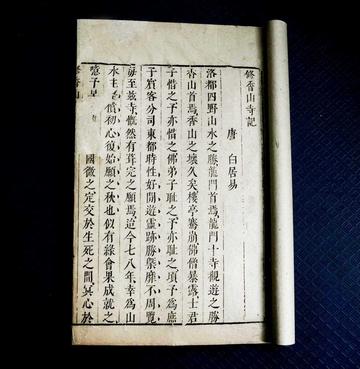 修香山寺記
唐 白居易
洛都四野山水之勝龍門首焉龍門十寺觀遊之勝
香山首焉香山之壞久矣樓亭騫崩佛僧暴露士君
子惜之予亦惜之佛弟子恥之予亦恥之頃予為庶
子賓客分司東都時性好閒遊靈跡勝槩靡不周覽
每至茲寺慨然有葺完之願焉迨今七八年幸為山
水主 償初心復始願之秋也似有緣會果成就之
噫予早 國微之定交於生死之間冥心於